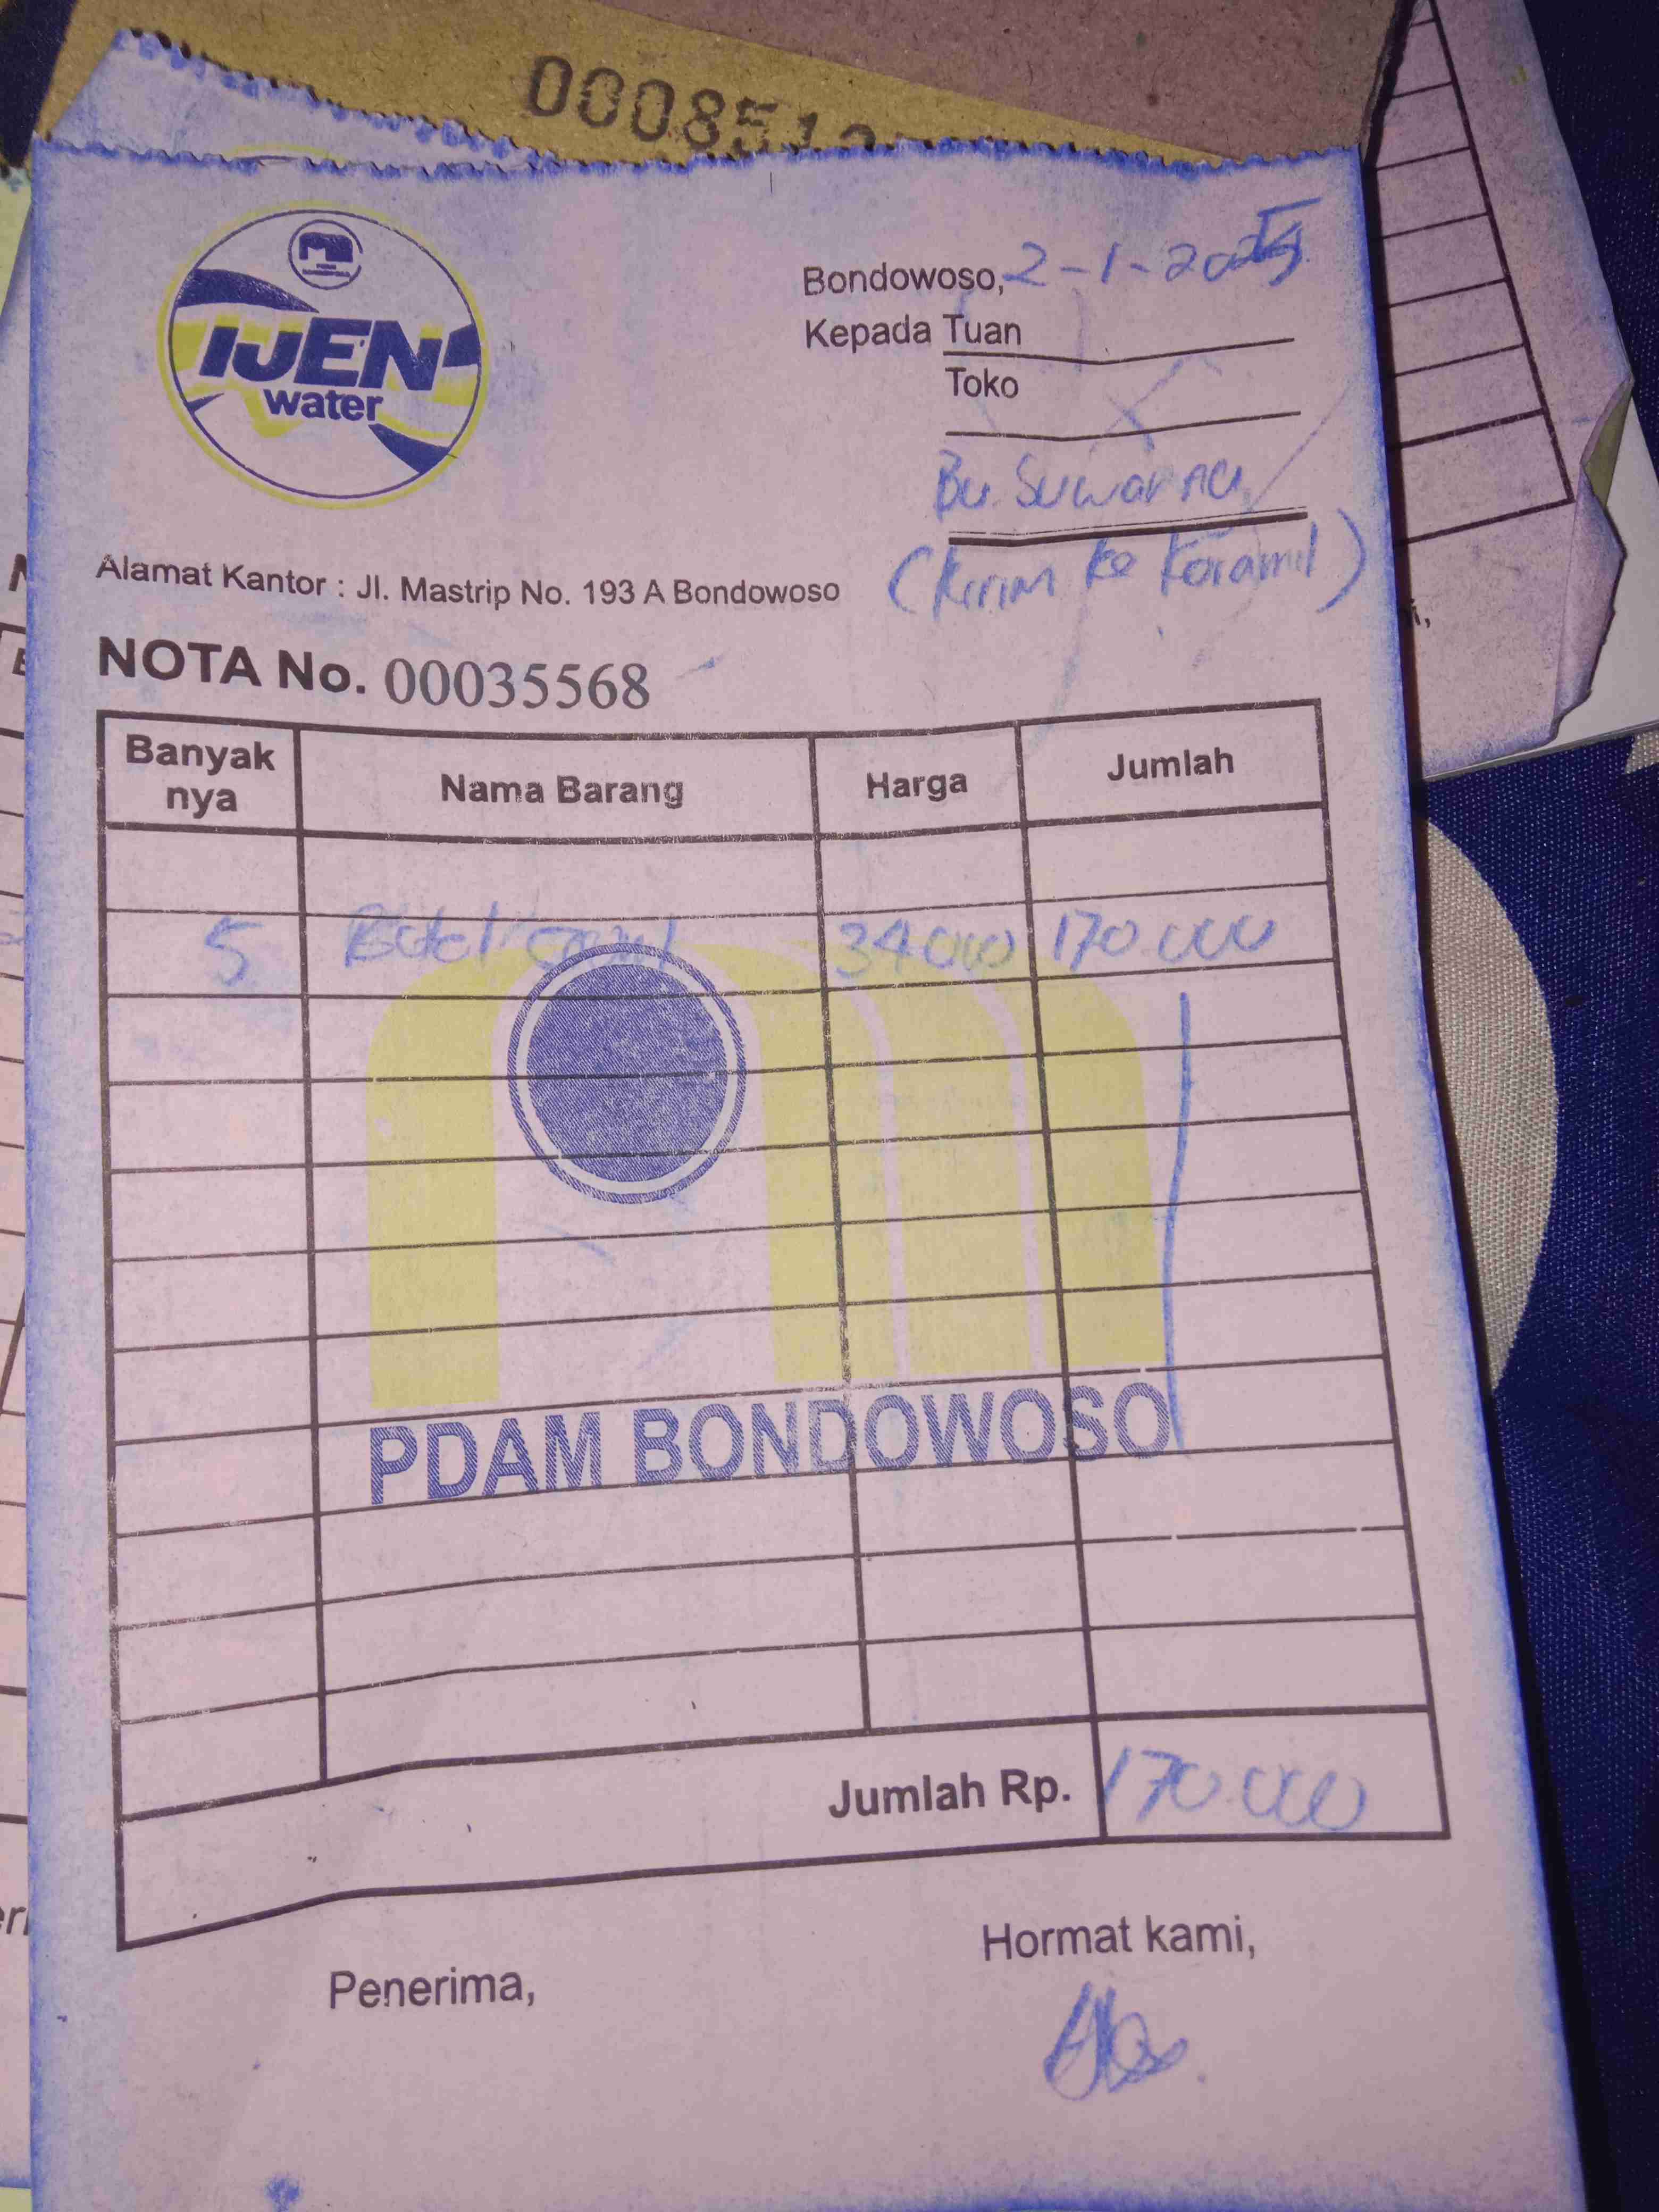 000851
IJEN
water
Bondowoso, 2-1-202
Kepada Tuan
Toko
Bu. Suwarna
(Kirim ke Koramil)
Alamat Kantor : Jl. Mastrip No. 193 A Bondowoso
NOTA No. 00035568
Banyak nya Nama Barang Harga Jumlah
5 Botol 34000 170.000
PDAM BONDOWOSO
Jumlah Rp. 170.000
Hormat kami,
Penerima,